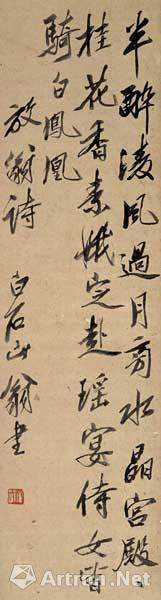 半醉凌风过月旁水晶宫殿
桂花香素娥定赴瑶宴侍女皆
骑白凤凰
放翁诗 白石山翁书
Artron.Net